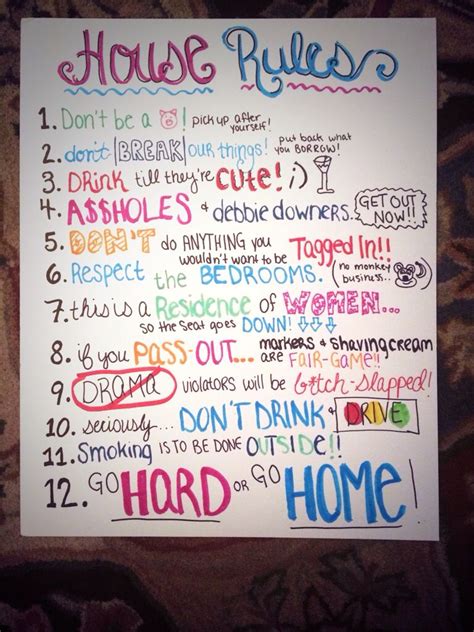 House Rules
1. Don't be a ! pick up after
yourself!
2. don't BREAK our things! put back what
you BORROW!
3. DRink till they're CUte! ;)
4. A$$HOLES & debbie downers. GET OUT
NOW!!
5. DON'T do ANYTHING you
wouldn't want to be Tagged In!!
6. Respect the BEDROOMS. (no monkey
business...)
7. this is a Residence of WOMEN...
so the Seat goes DOWN!
8. if you PASS-OUT... markers & shaving cream
are FAIR-GAME!!
9. DRAMA violators will be b*tch-slapped!
10. seriously... DON'T DRINK & DRIVE
11. Smoking IS TO BE DONE OUTSIDE!!
12. GO HARD OR GO HOME!